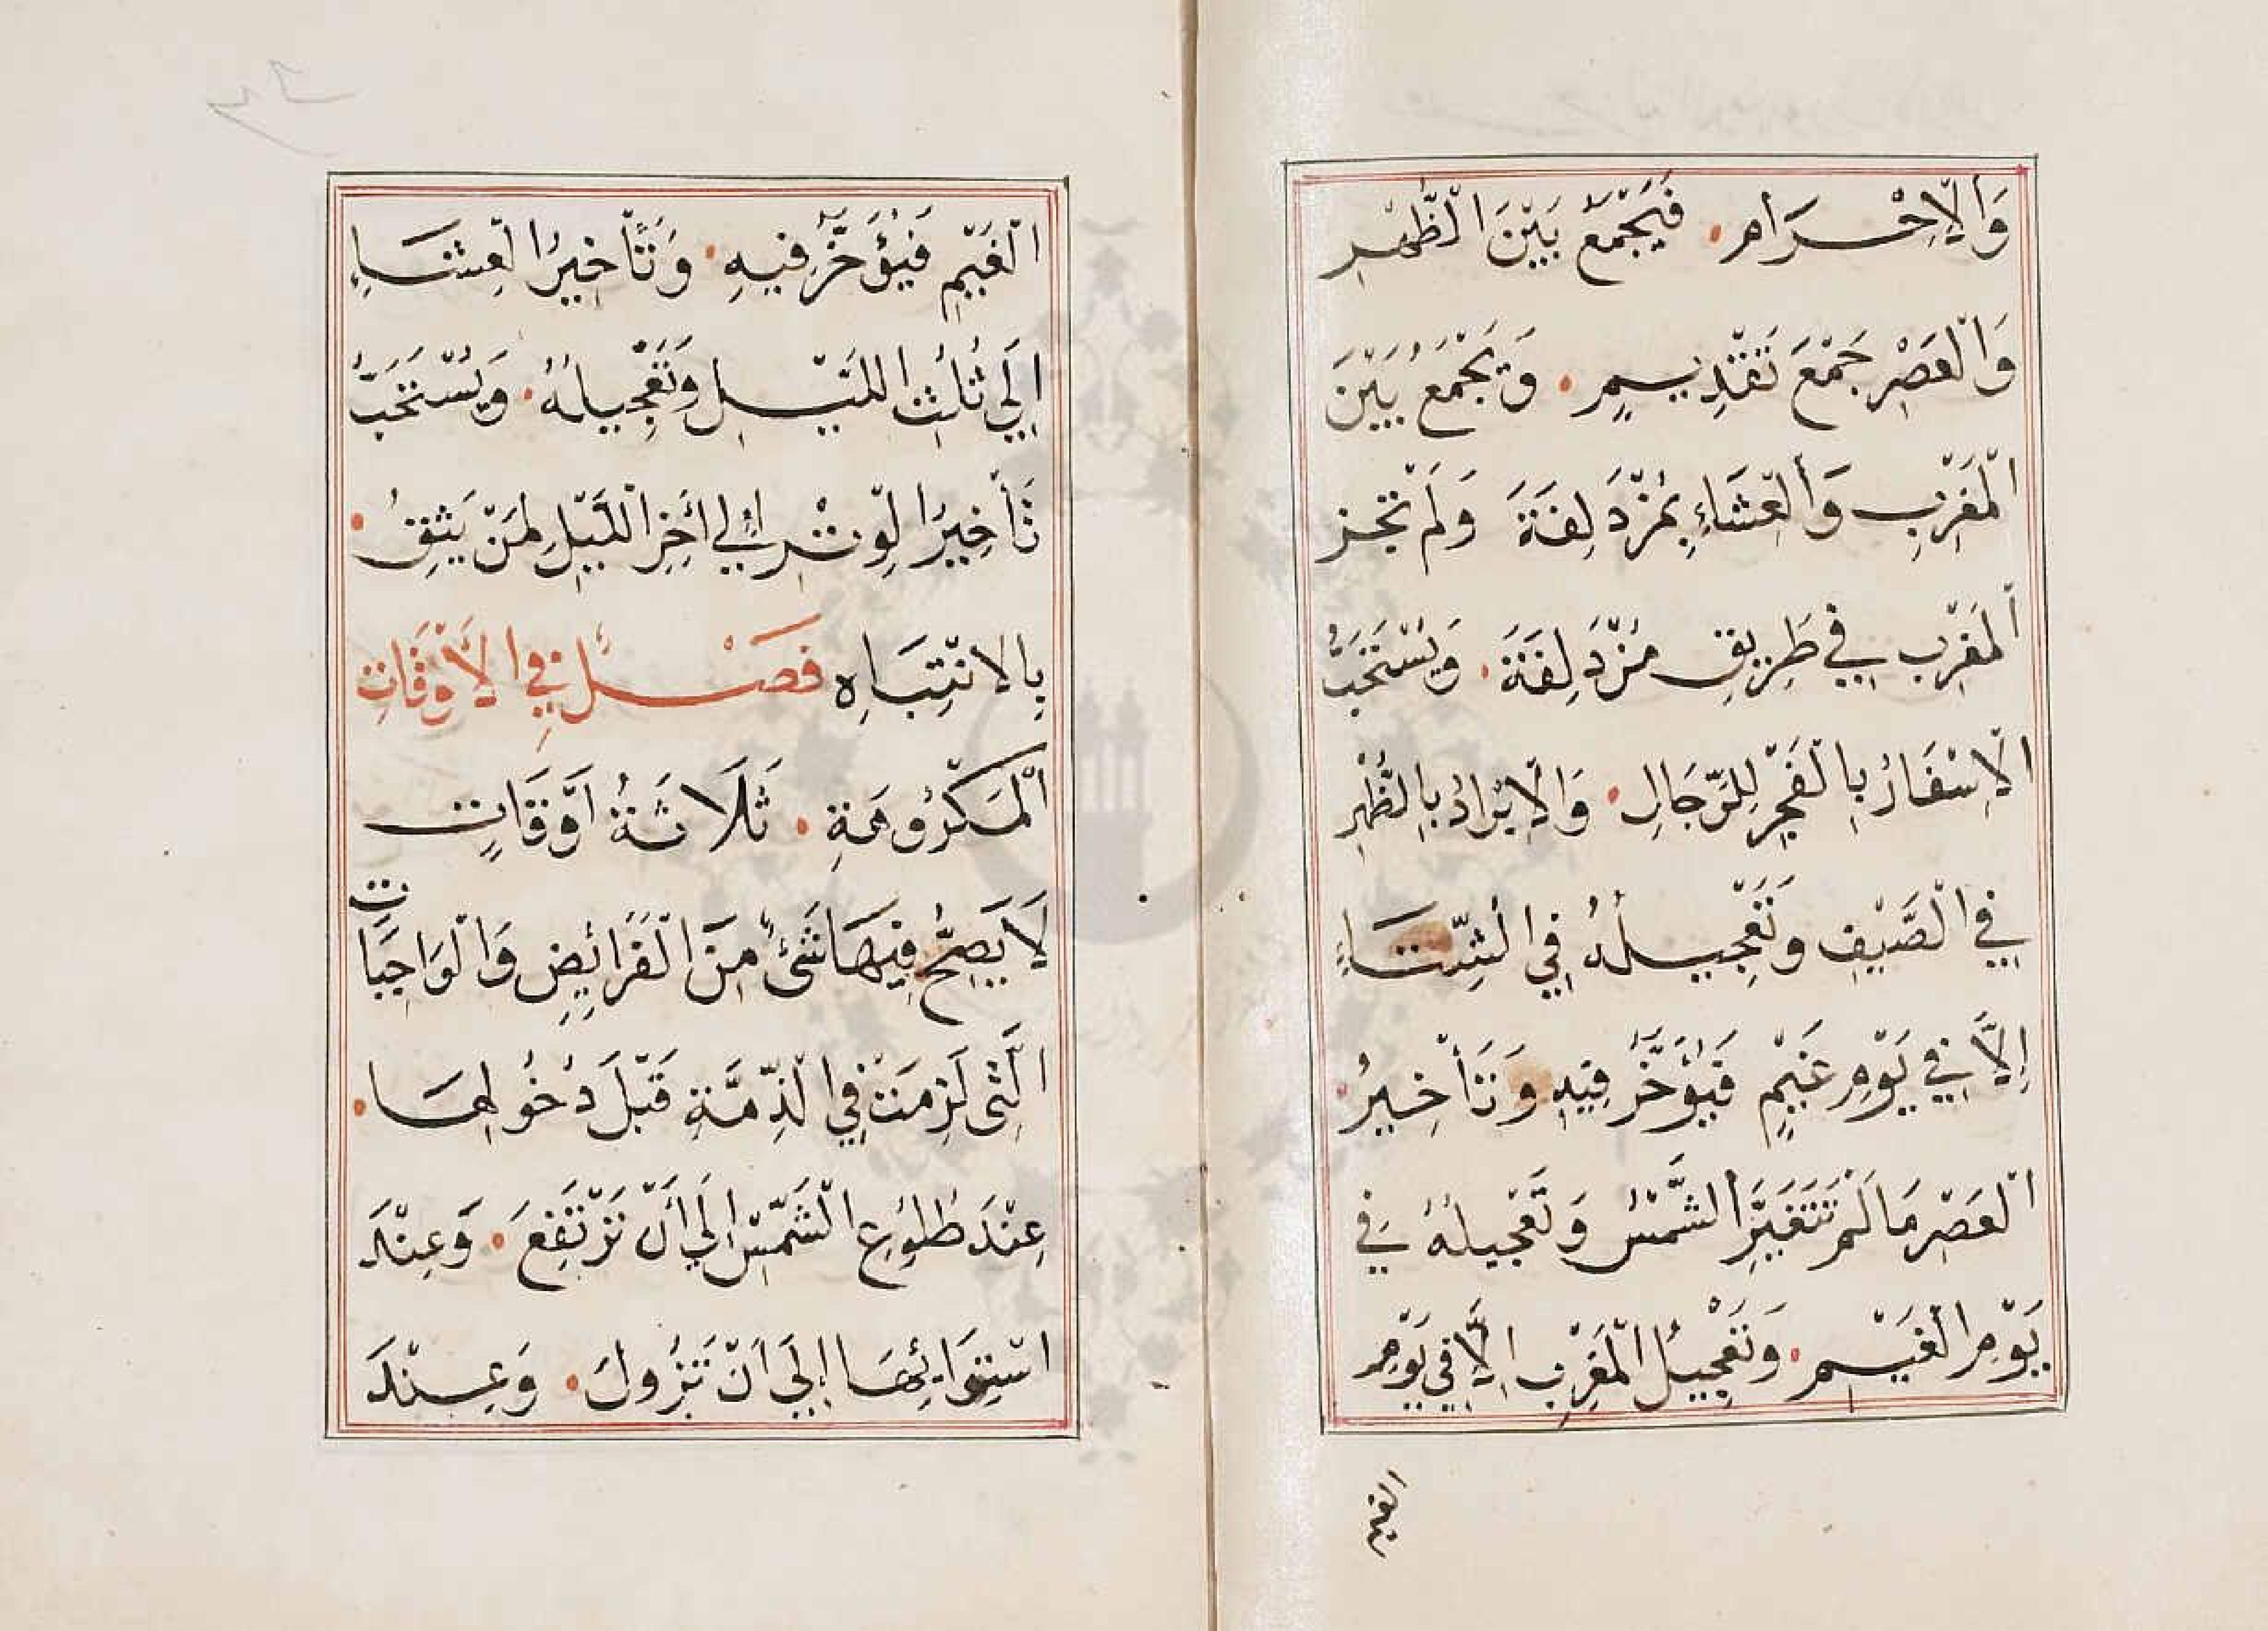 وَالْاِحْـرَامِ. فَيَجْمَعُ بَيْنَ الْظُّهْرِ
وَالْعَصْرِ جَمْعَ تَقْدِيـمٍ. وَيَجْمَعُ بَيْنَ
الْمَغْرِبِ وَالْعِشَاءِ بِمُزْدَلِفَةَ وَلَمْ تَجُز
الْمَغْرِبُ فِي طَرِيقِ مُزْدَلِفَةَ. وَيُسْتَحَبُّ
الْاِسْفَارُ بِالْفَجْرِ لِلرِّجَالِ. وَالْاِبْرَادُ بِالْظُّهْرِ
فِي الْصَّيْفِ وَتَعْجِيلُهُ فِي الْشِّتَاءِ
اِلَّا فِي يَوْمِ غَيْمٍ فَيُؤَخَّرُ فِيْهِ وَتَأْخِيرُ
الْعَصْرِ مَا لَمْ تَتَغَيَّرِ الشَّمْسُ وَتَعْجِيلُهُ فِي
يَوْمِ الْغَيْـمِ. وَتَعْجِيْلُ الْمَغْرِبِ اِلَّا فِي يَوْمِ
الغيم
الْغَيْمِ فَيُؤَخَّرُ فِيهِ. وَتَأْخِيرُ الْعِشَـاءِ
اِلَي ثُلُثِ اللَّيْـلِ وَتَعْجِيلُهُ. وَيُسْتَحَبُّ
تَأْخِيرُ الْوِتْرِ اِلَي اَخِرِ الْلَيْلِ لِمَنْ يَثِقُ.
بِالاِنْتِبَاهِ فَصْـلٌ فِي الْاَوْقَاتِ
الْمَكْرُوهَةِ. ثَلَاثَةُ اَوْقَاتٍ
لَا يَصِحُّ فِيْهَا شَئٌ مِنَ الْفَرَائِضِ وَالْوَاجِبَاتِ
الَّتِى لَزِمَتْ فِي الْذِّمَّةِ قَبْلَ دُخُولِهَـا.
عِنْدَ طُلُوعِ الْشَّمْسِ اِلَي أَنْ تَرْتَفِعَ. وَعِنْدَ
اسْتِوَائِهَا اِلَي اَنْ تَزُولَ. وَعِـنْدَ